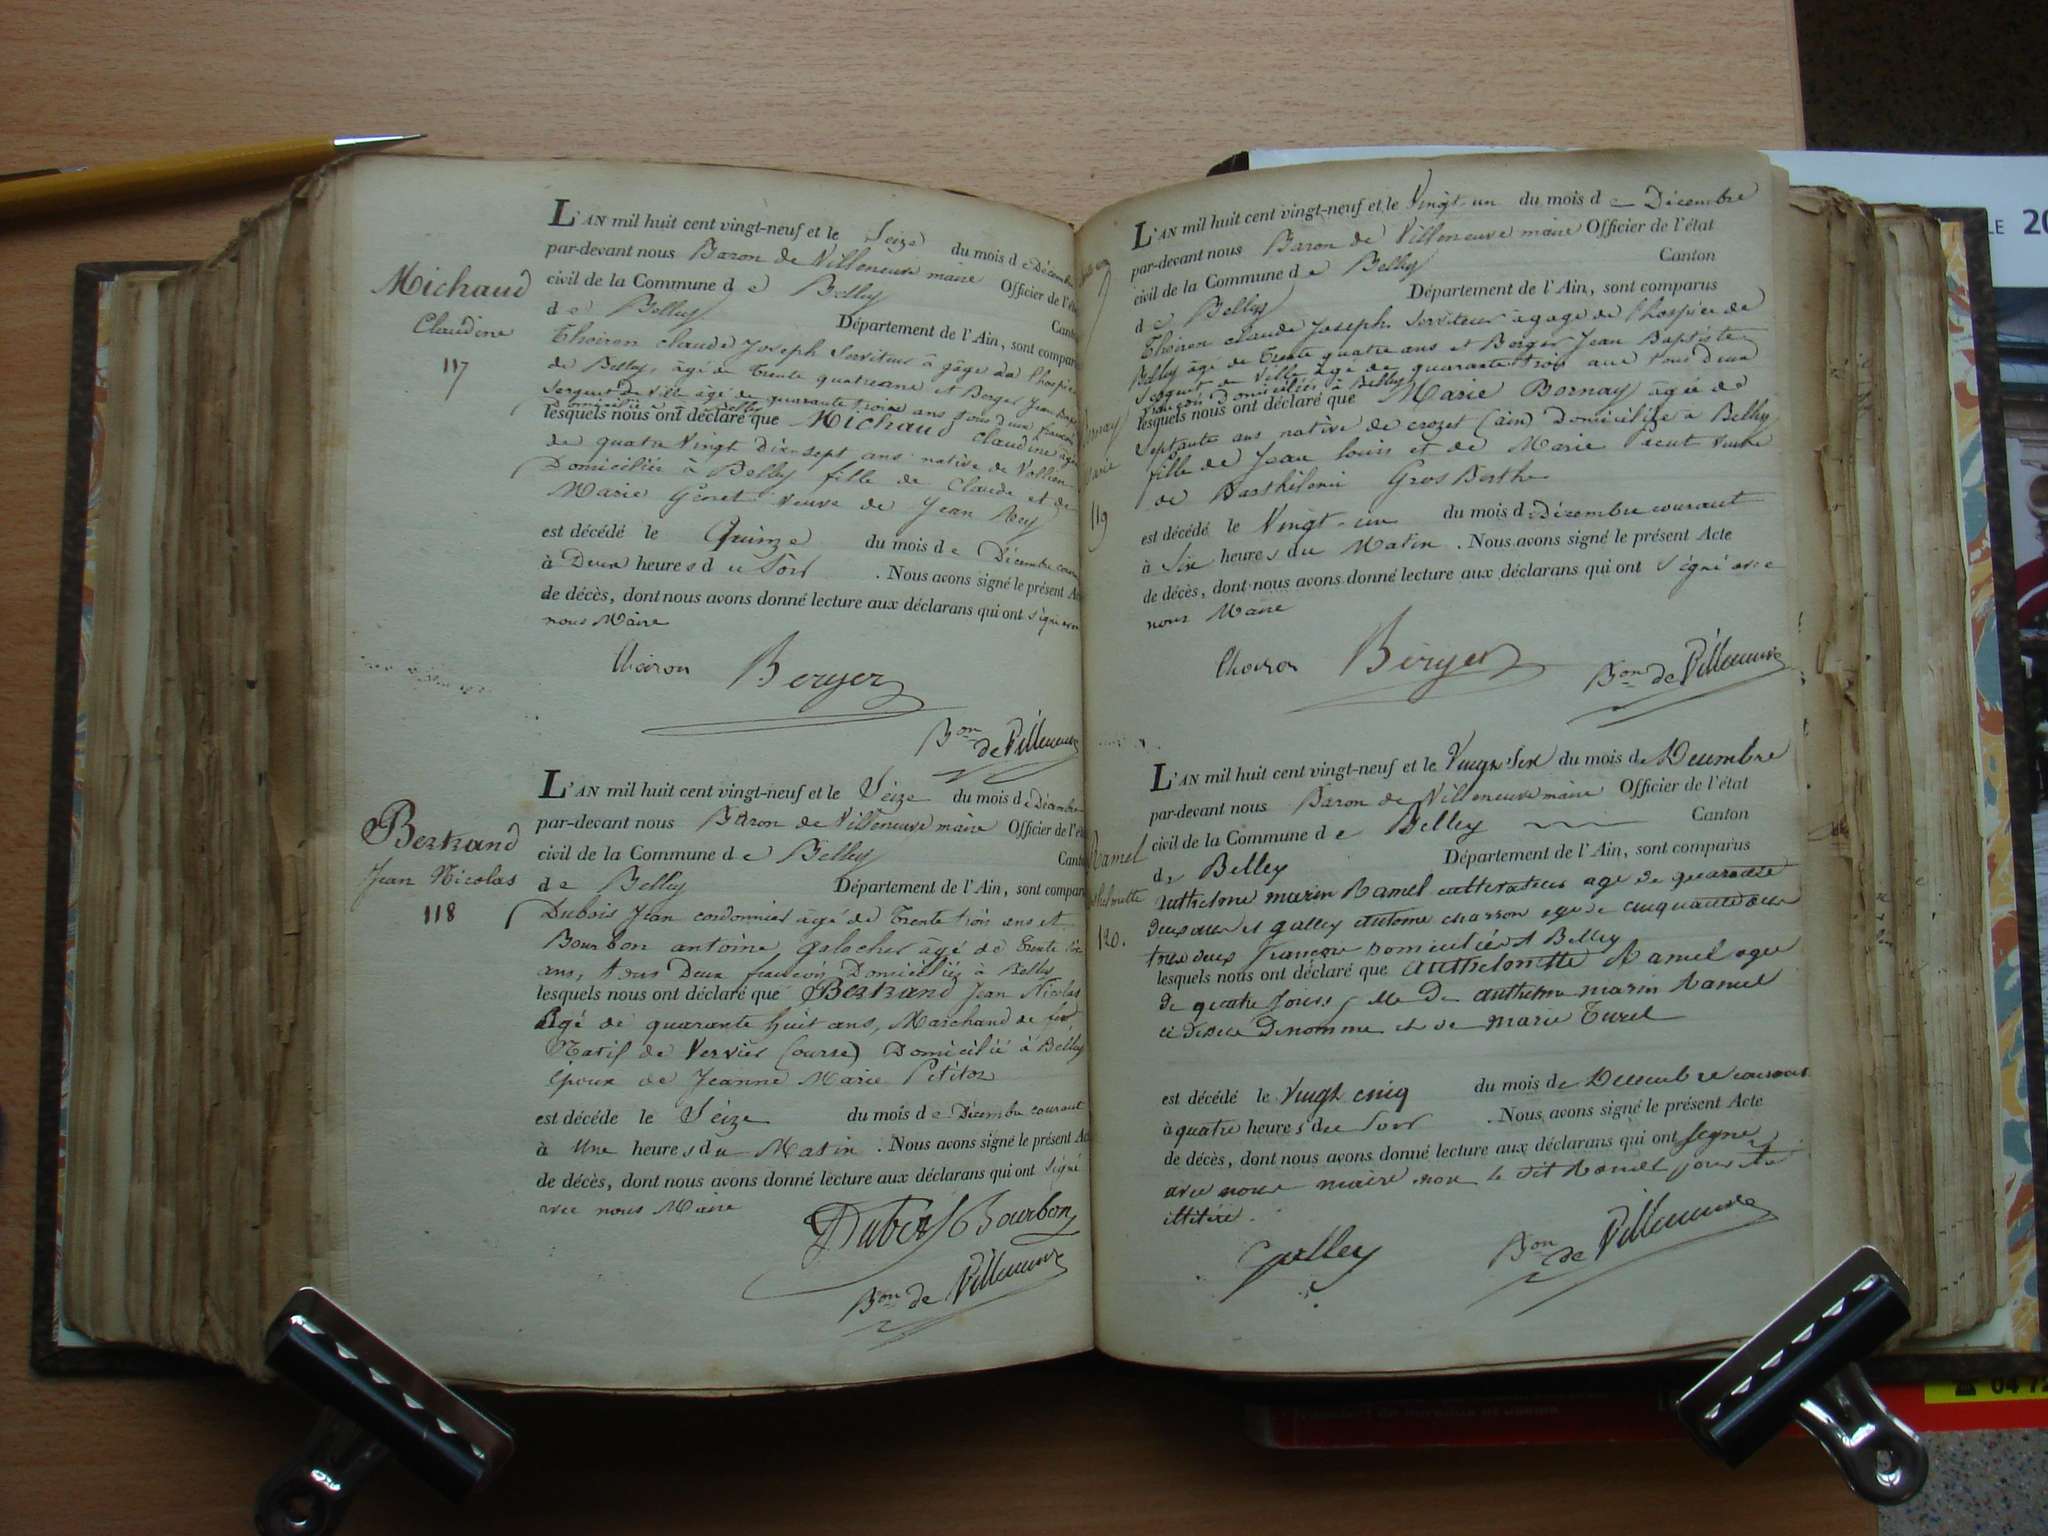 Michaud
Claudine
117
L'AN mil huit cent vingt-neuf et le Seize du mois de Décembre
par-devant nous Baron de Villeneuve maire Officier de l'état
civil de la Commune de Belley Canton
de Belley Département de l'Ain, sont comparus
Thoiron claude Joseph Serviteur à gage de l'hospice
de Belley, âgé de Trente quatre ans et Berger Jean
Sergent de Ville âgé de quarante trois ans tous deux françois
Domiciliés à Belley
lesquels nous ont déclaré que Michaud Claudine âgée
de quatre Vingt Dix sept ans native de
Domiciliée à Belley fille de Claude et de
Marie Genet Veuve de Jean Rey
est décédé le Quinze du mois de Décembre courant
à Deux heures du Soir . Nous avons signé le présent Acte
de décès, dont nous avons donné lecture aux déclarans qui ont signé avec
nous Maire
Thoiron Berger
Bon de Villeneuve
Bertrand
Jean Nicolas
118
L'AN mil huit cent vingt-neuf et le Seize du mois de Décembre
par-devant nous Baron de Villeneuve maire Officier de l'état
civil de la Commune de Belley Canton
de Belley Département de l'Ain, sont comparus
Dubois Jean cordonnier âgé de Trente trois ans et
Bourbon antoine galocher âgé de Trente six
ans, tous Deux françois Domiciliés à Belley
lesquels nous ont déclaré que Bertrand Jean Nicolas
Agé de quarante huit ans, Marchand de fer
Natif de Verviés (ourse) Domicilié à Belley
époux de Jeanne Marie Petitor
est décédé le Seize du mois de Décembre courant
à Une heures du Matin . Nous avons signé le présent Acte
de décès, dont nous avons donné lecture aux déclarans qui ont signé
avec nous Maire
Dubois Bourbon
Bon de Villeneuve
L'AN mil huit cent vingt-neuf et le Vingt-un du mois de Décembre
par-devant nous Baron de Villeneuve maire Officier de l'état
civil de la Commune de Belley Canton
de Belley Département de l'Ain, sont comparus
Thoiron claude Joseph Serviteur à gage de l'hospice de
Belley âgé de Trente quatre ans et Berger Jean Baptiste
Sergent de Ville âgé de quarante trois ans tous deux
françois Domiciliés à Belley
lesquels nous ont déclaré que Marie Bornay âgée de
Septante ans native de crozet (ain) Domiciliée à Belley
fille de Jean louis et de Marie veuve
de Barthélemi Gros Berthe
119
est décédé le Vingt-un du mois de Décembre courant
à Six heures du Matin . Nous avons signé le présent Acte
de décès, dont nous avons donné lecture aux déclarans qui ont signé avec
nous Maire
Thoiron Berger Bon de Villeneuve
L'AN mil huit cent vingt-neuf et le Vingt Six du mois de Decembre
par-devant nous Baron de Villeneuve maire Officier de l'état
civil de la Commune de Belley Canton
de Belley Département de l'Ain, sont comparus
Ramel
120.
Anthelme marin Ramel cultivateur age de quarante
deux ans et galley antoine charron age de cinquante
tous deux françois Domiciliés à Belley
lesquels nous ont déclaré que Anthelmette Ramel agee
de quatre Jours fille de anthelme marin Ramel
ci dessus Denommé et de marie Turel
est décédé le Vingt cinq du mois de Decembre courant
à quatre heures du Soir . Nous avons signé le présent Acte
de décès, dont nous avons donné lecture aux déclarans qui ont Signé
avec nous maire non le dit Ramel pour être
illitéré.
Galley Bon de Villeneuve